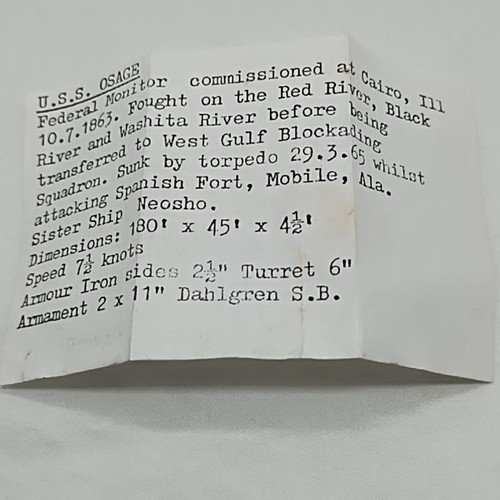 U.S.S. OSAGE
Federal Monitor commissioned at Cairo, Ill
10.7.1863. Fought on the Red River, Black
River and Washita River before being
transferred to West Gulf Blockading
Squadron. Sunk by torpedo 29.3.65 whilst
attacking Spanish Fort, Mobile, Ala.
Sister Ship Neosho.
Dimensions: 180' x 45' x 4½'
Speed 7½ knots
Armour Iron sides 2½" Turret 6"
Armament 2 x 11" Dahlgren S.B.